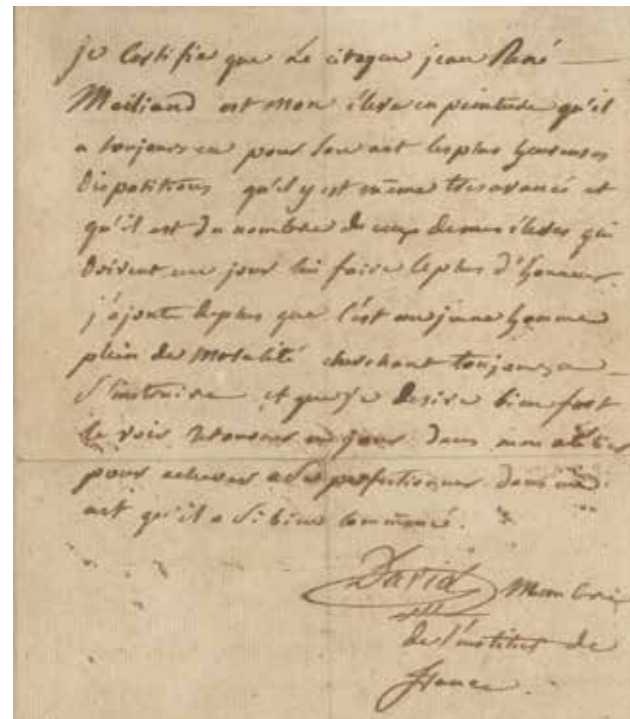 je Certifie que Le citoyen jean René
Mailiand est mon éleve en peinture qu'il
a toujours eu pour son art les plus heureuses
dispositions qu'il y est même tres avancé et
qu'il est du nombre de ceux de mes éleves qui
doivent un jour lui faire le plus d'honneur.
j'ajoute de plus que c'est un jeune homme
plein de moralité cherchant toujours a
s'instruire, et que je desire bien fort
le voir retourner un jour dans mon attelier
pour achever a se perfectionner dans un
art qu'il a si bien commencé.
David Membre
de l'institut de
france.